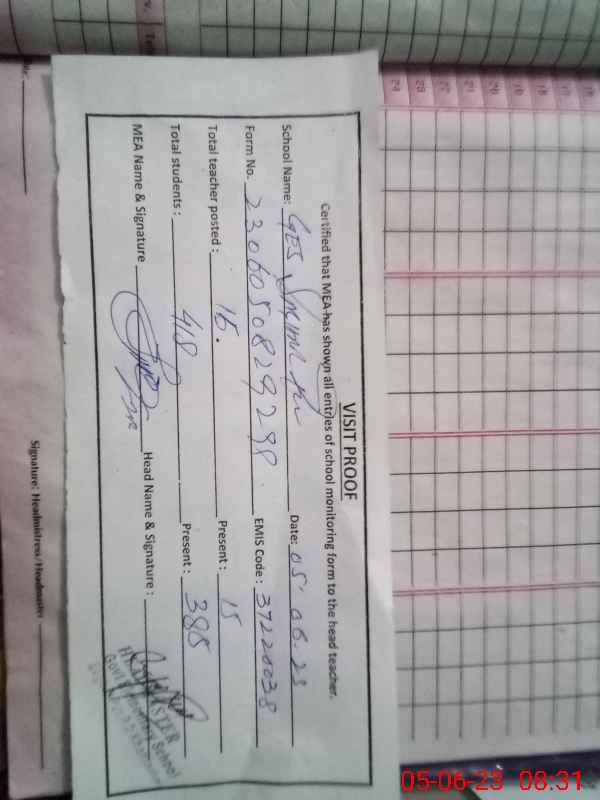 VISIT PROOF
Certified that MEA has shown all entries of school monitoring form to the head teacher.
School Name: GES Date: 05.06.23
Form No. 2306050829298 EMIS Code : 37220038
Total teacher posted : 15. Present : 15
Total students : 418 Present : 385
MEA Name & Signature Head Name & Signature :
School
Signature: Headmistress/Headmaster
05-06-23 08:31